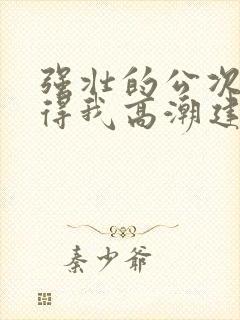 强壮的公次
得我高潮连
秦少爷